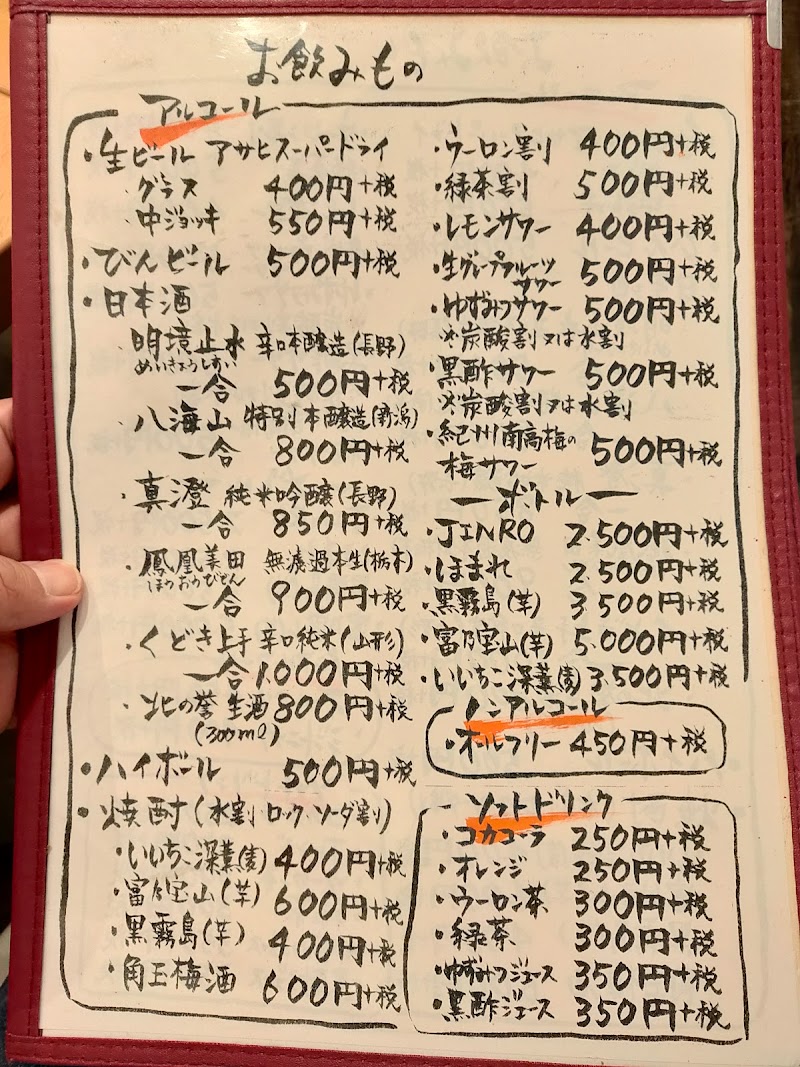 お飲みもの
アルコール
・生ビール アサヒスーパードライ
・グラス 400円+税
・中ジョッキ 550円+税
・びんビール 500円+税
・日本酒
・明境止水 辛口本醸造(長野)
めいきょうしすい
一合 500円+税
・八海山 特別本醸造(新潟)
一合 800円+税
・真澄 純米吟醸(長野)
一合 850円+税
・鳳凰美田 無濾過本生(栃木)
ほうおうびでん
一合 900円+税
・くどき上手 辛口純米(山形)
一合 1.000円+税
・北の誉 生酒 800円+税
(300ml)
・ハイボール 500円+税
・焼酎(水割・ロック・ソーダ割)
・いいちこ深薫(麦) 400円+税
・富乃宝山(芋) 600円+税
・黒霧島(芋) 400円+税
・角玉梅酒 600円+税
・ウーロン割 400円+税
・緑茶割 500円+税
・レモンサワー 400円+税
・生グレープフルーツ
サワー 500円+税
・ゆずみつサワー 500円+税
※炭酸割又は水割
・黒酢サワー 500円+税
※炭酸割又は水割
・紀州南高梅の
梅サワー 500円+税
ーボトルー
・JINRO 2.500円+税
・ほまれ 2.500円+税
・黒霧島(芋) 3.500円+税
・富乃宝山(芋) 5.000円+税
・いいちこ深薫(麦) 3.500円+税
ノンアルコール
・オールフリー 450円+税
ソフトドリンク
・コカコーラ 250円+税
・オレンジ 250円+税
・ウーロン茶 300円+税
・緑茶 300円+税
・ゆずみつジュース 350円+税
・黒酢ジュース 350円+税